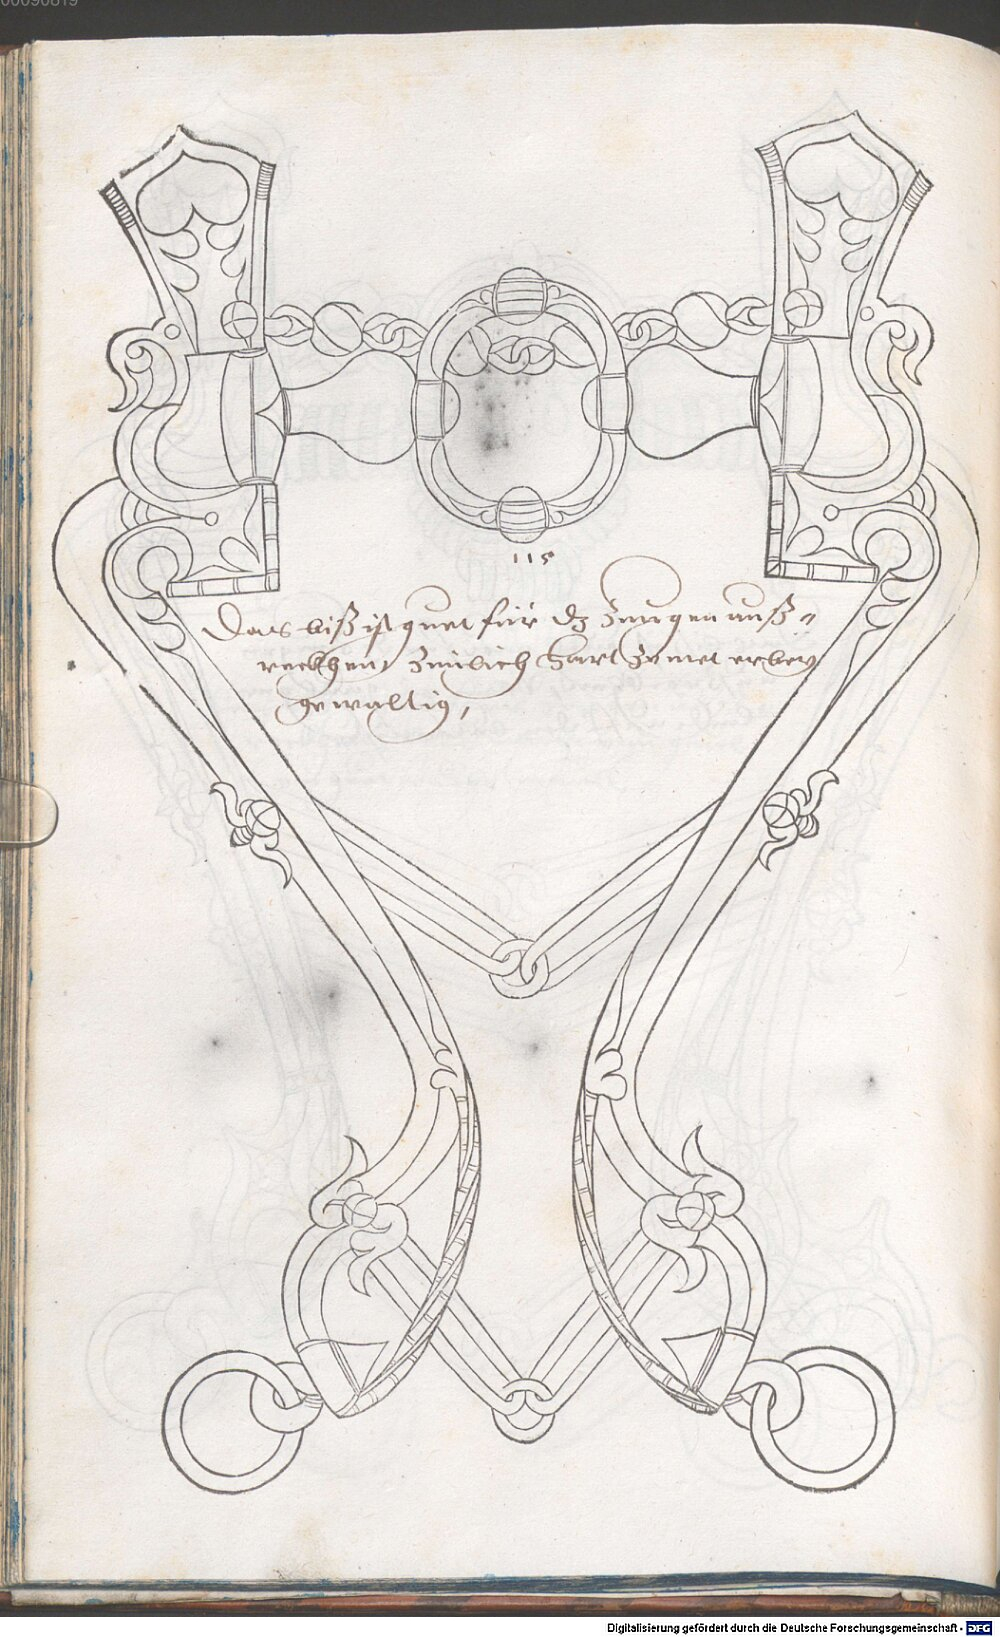 00090819
115
Das biß ist guet für dz Zungen auß-
reckhen, Zimlich hart Zemet erbey
gewaltig,
Digitalisierung gefördert durch die Deutsche Forschungsgemeinschaft - DFG